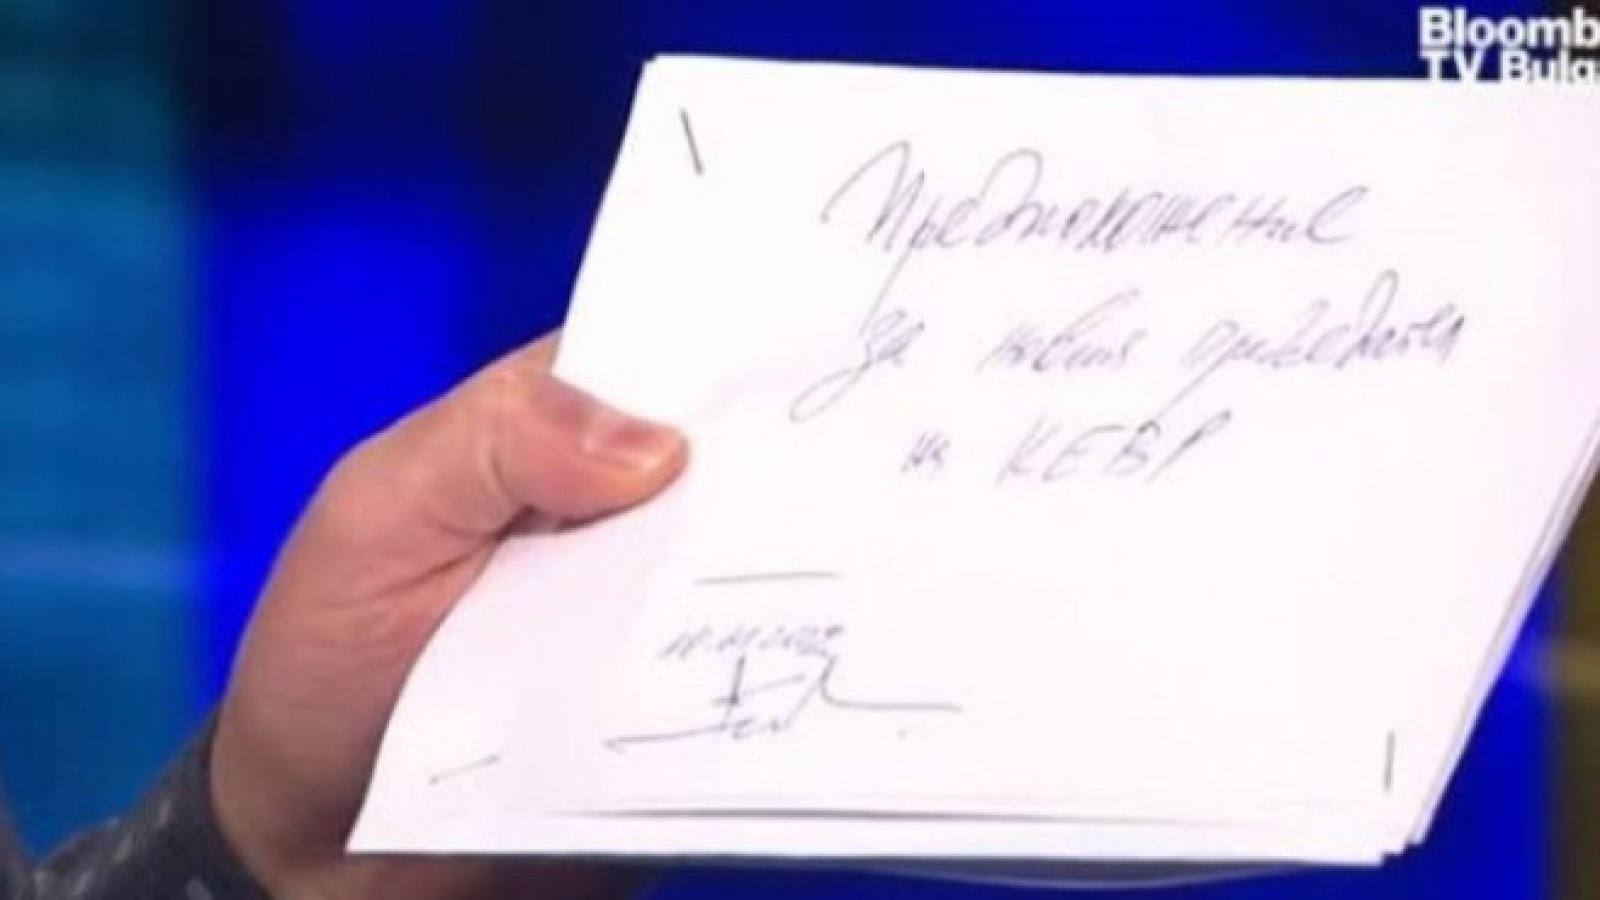 Bloomb
TV Bulg
Предположение
за новия председател
на КЕВР